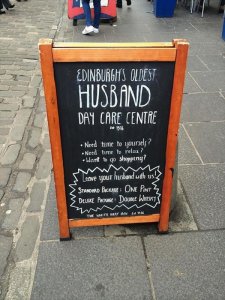 EDINBURGH'S OLDEST
HUSBAND
DAY CARE CENTRE
est 1516
• Need time to yourself?
• Need time to relax?
• Want to go shopping?
Leave your husband with us
STANDARD PACKAGE: ONE PINT
DELUXE PACKAGE: DOUBLE WHISKY
THE WHITE HART INN est 1516